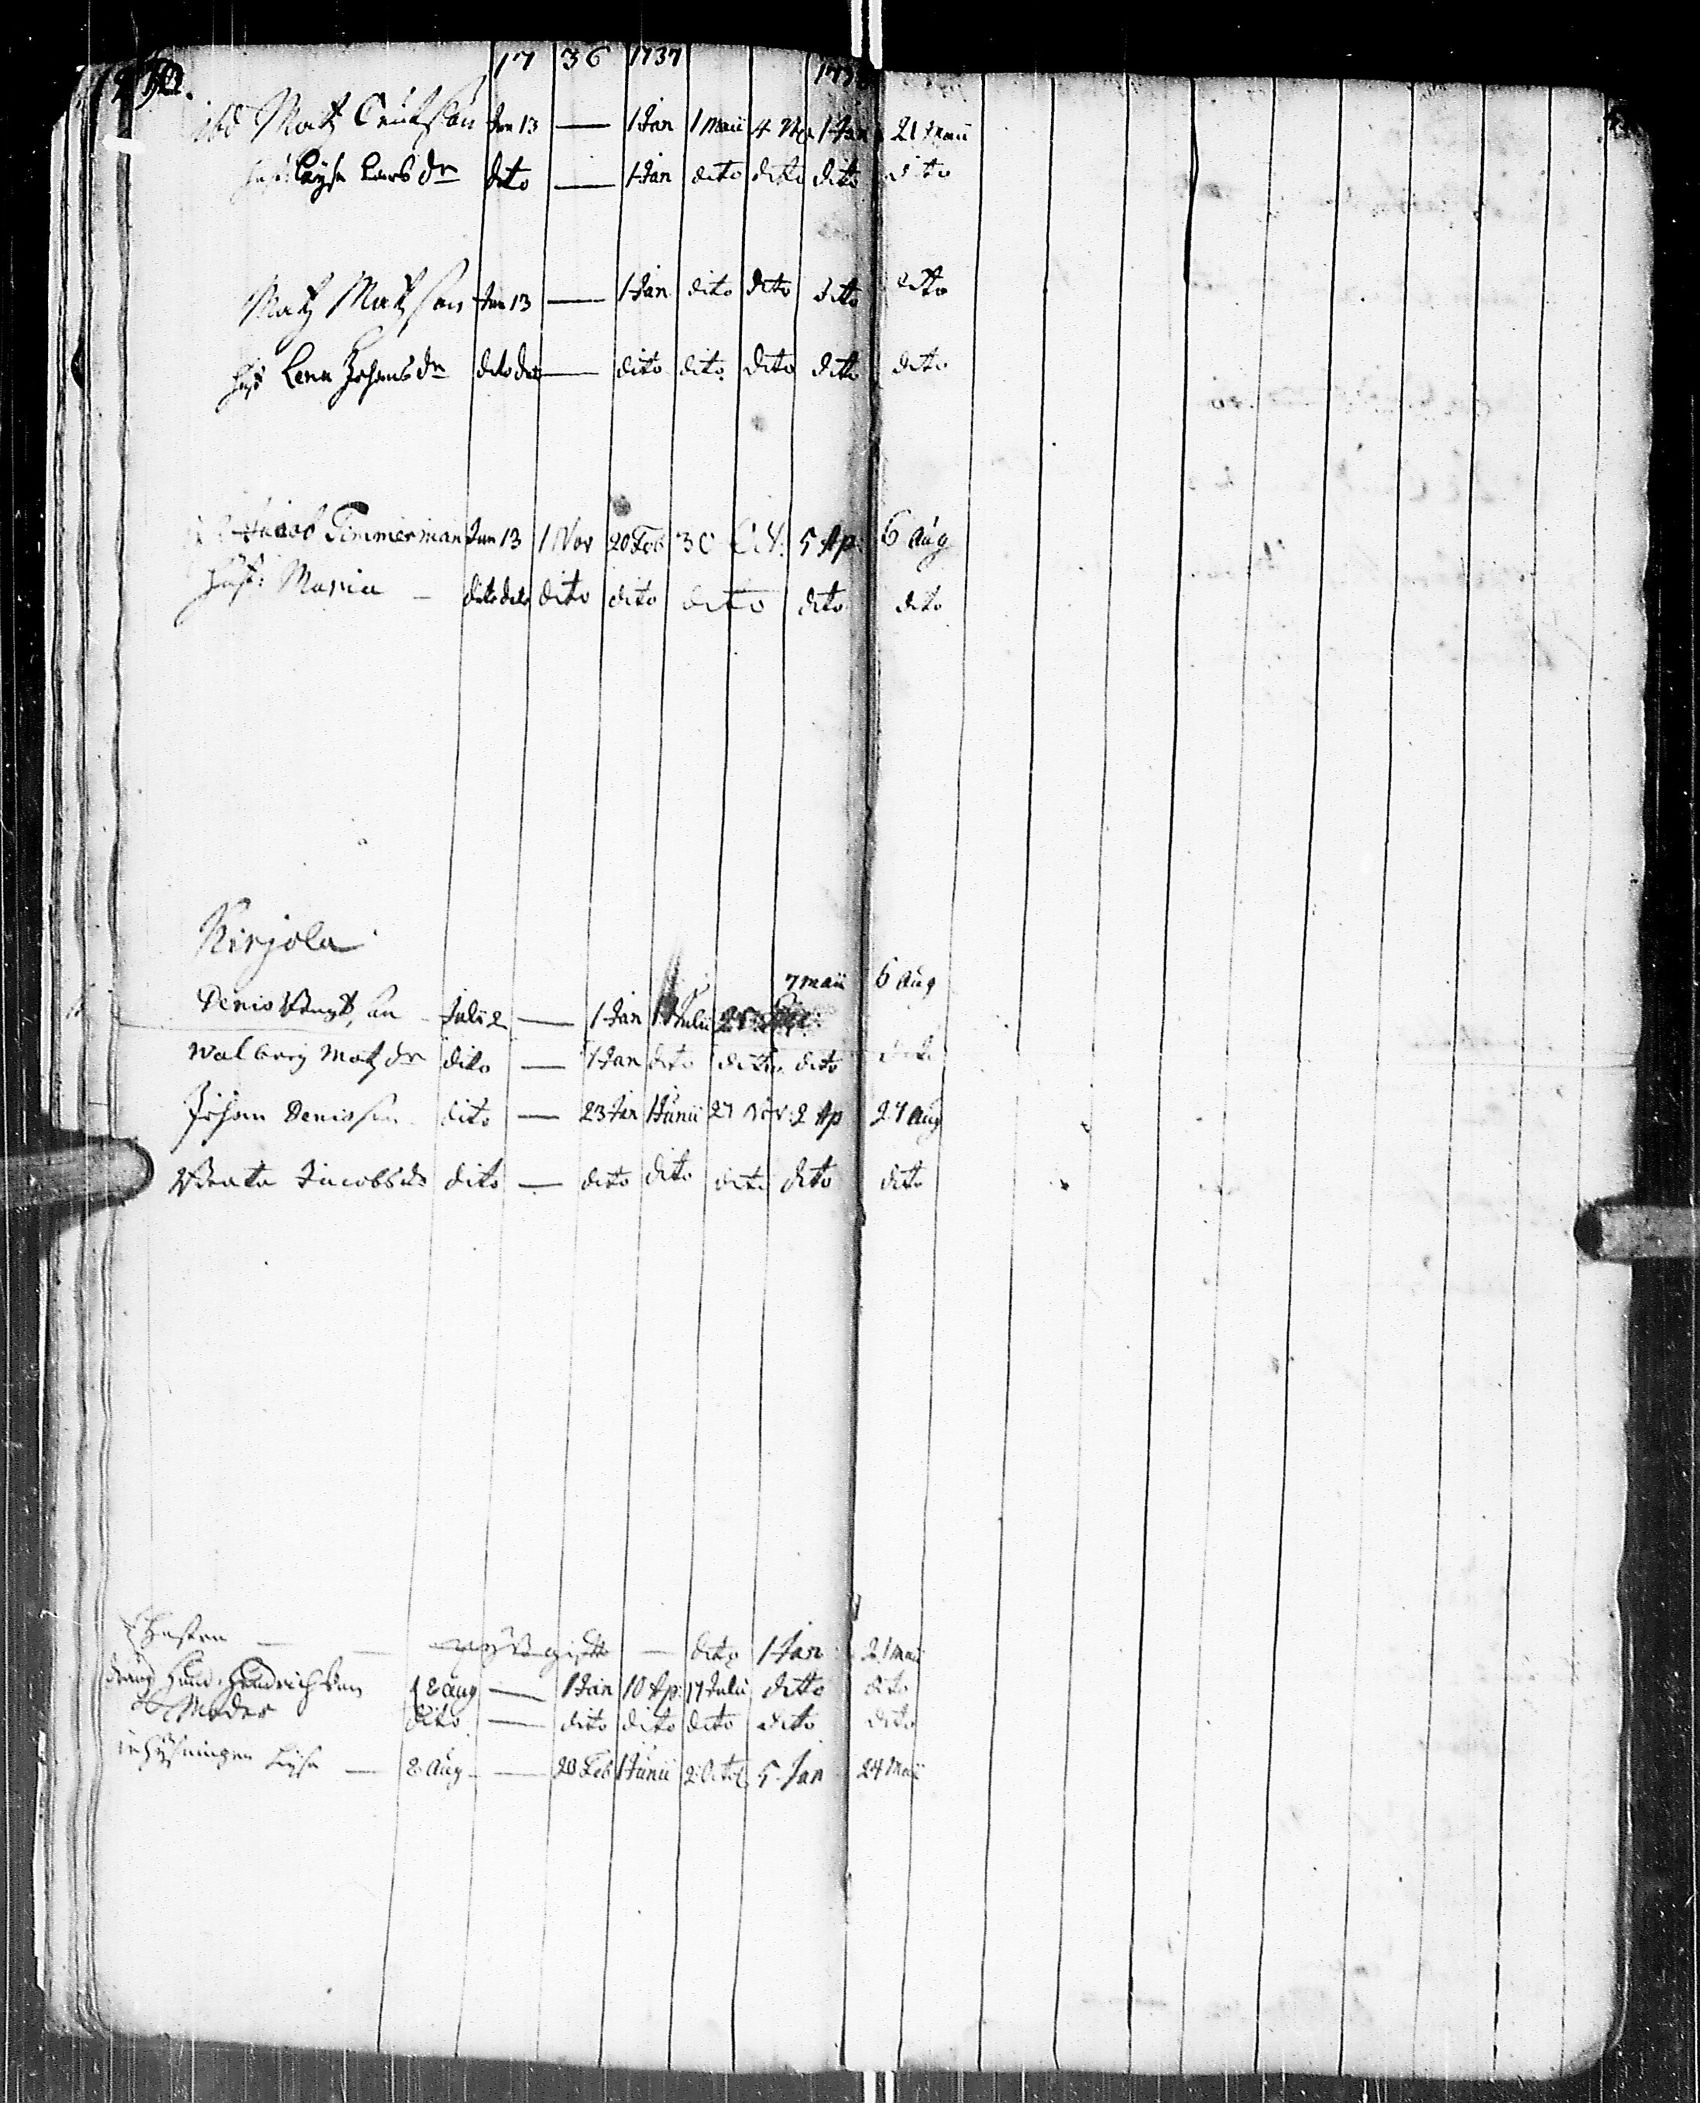 17 36 1737
Matz Erickson Jun 13 — 1 Jan 1 Maii 4 No 1 Jan 21 Maii
hust: Lars dr dito — 1 Jan dito dito dito dito
Matz Matzson Jun 13 — 1 Jan dito dito dito dito
hust Lena Johans dr dito dito — dito dito dito dito dito
Jacob Timmerman Jun 13 1 Nov 20 Feb 30 Oct. 5 Ap 6 Aug
hust: Maria — dito dito dito dito dito dito dito
Kirjola
7 maii 6 Aug
Denis Julii 2 — 1 Jan 1 Julii
Walborg Matz dr dito — 1 Jan dito dito dito dito
Johan Denisson dito — 23 Jan 1 Junii 27 Nov. 2 Ap 27 Aug
Beata Jacobs dr dito — dito dito dito dito dito
— dito 1 Jan 21 maii
Hendrichson 8 aug — 1 Jan 10 Ap 17 Julii ditto dito
Moder dito — dito dito dito dito dito
inhysningen Lisa — 8 Aug — 20 Feb 1 Junii 2 Octob 5 Jan 24 Maii